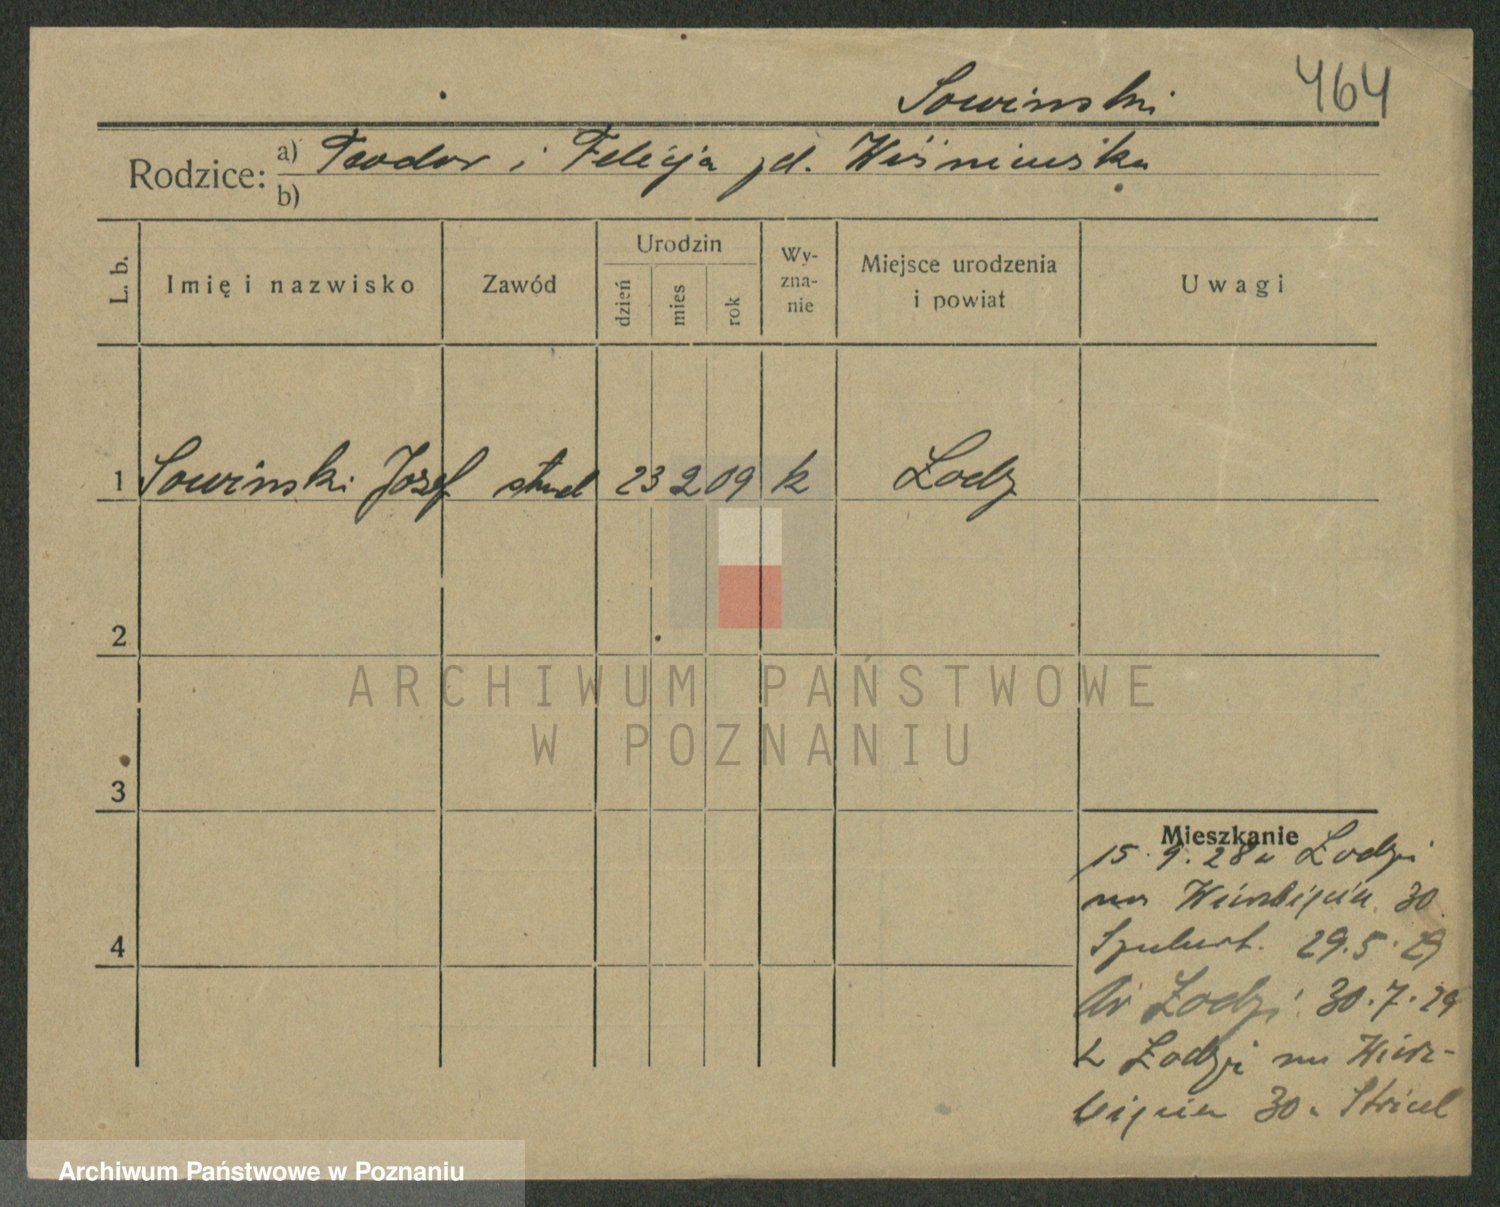 Sowinski 464
Rodzice: a) Teodor i Felicja zd. Wiśniewska
b)
L. b. Imię i nazwisko Zawód Urodzin dzień mies rok Wy-zna-nie Miejsce urodzenia i powiat Uwagi
1 Sowinski Jozef stud 23 2 09 k Łodz
2
ARCHIWUM PAŃSTWOWE
W POZNANIU
3
Mieszkanie
15.9.28 Łodzi
na 30
29.5.29
Łodzi 30.7.29
z Łodzi na Wierz-
bięcia 30
4
Archiwum Państwowe w Poznaniu